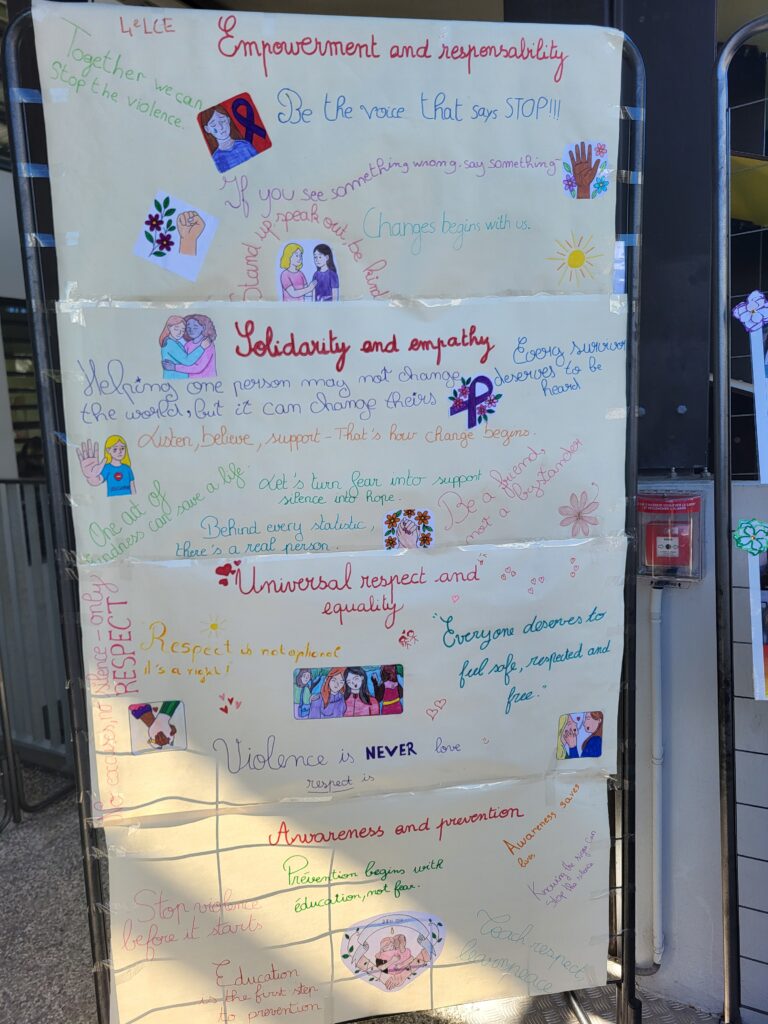 4e LCE
Empowerment and responsability
Together we can
Stop the violence.
Be the voice that says STOP!!!
If you see something wrong. say something
Stand up speak out, be kind
Changes begins with us.
Solidarity and empathy
Helping one person may not change
the world, but it can change theirs
Every survivor
deserves to be
heard
Listen, believe, support - That's how change begins.
One act of
kindness can save a life.
Let's turn fear into support
silence into hope.
Be a friend,
not a bystander
Behind every statistic,
there's a real person.
Universal respect and
equality
No excuses, no violence - only
RESPECT
Respect is not optional
it's a right!
"Everyone deserves to
feel safe, respected and
free."
Violence is NEVER love
respect is
Awareness and prevention
Awareness saves
lives
Prévention begins with
éducation, not fear.
Knowing the signs can
stop the
Stop violence
before it starts
Teach respect
learn peace
Education
is the first step
to prevention